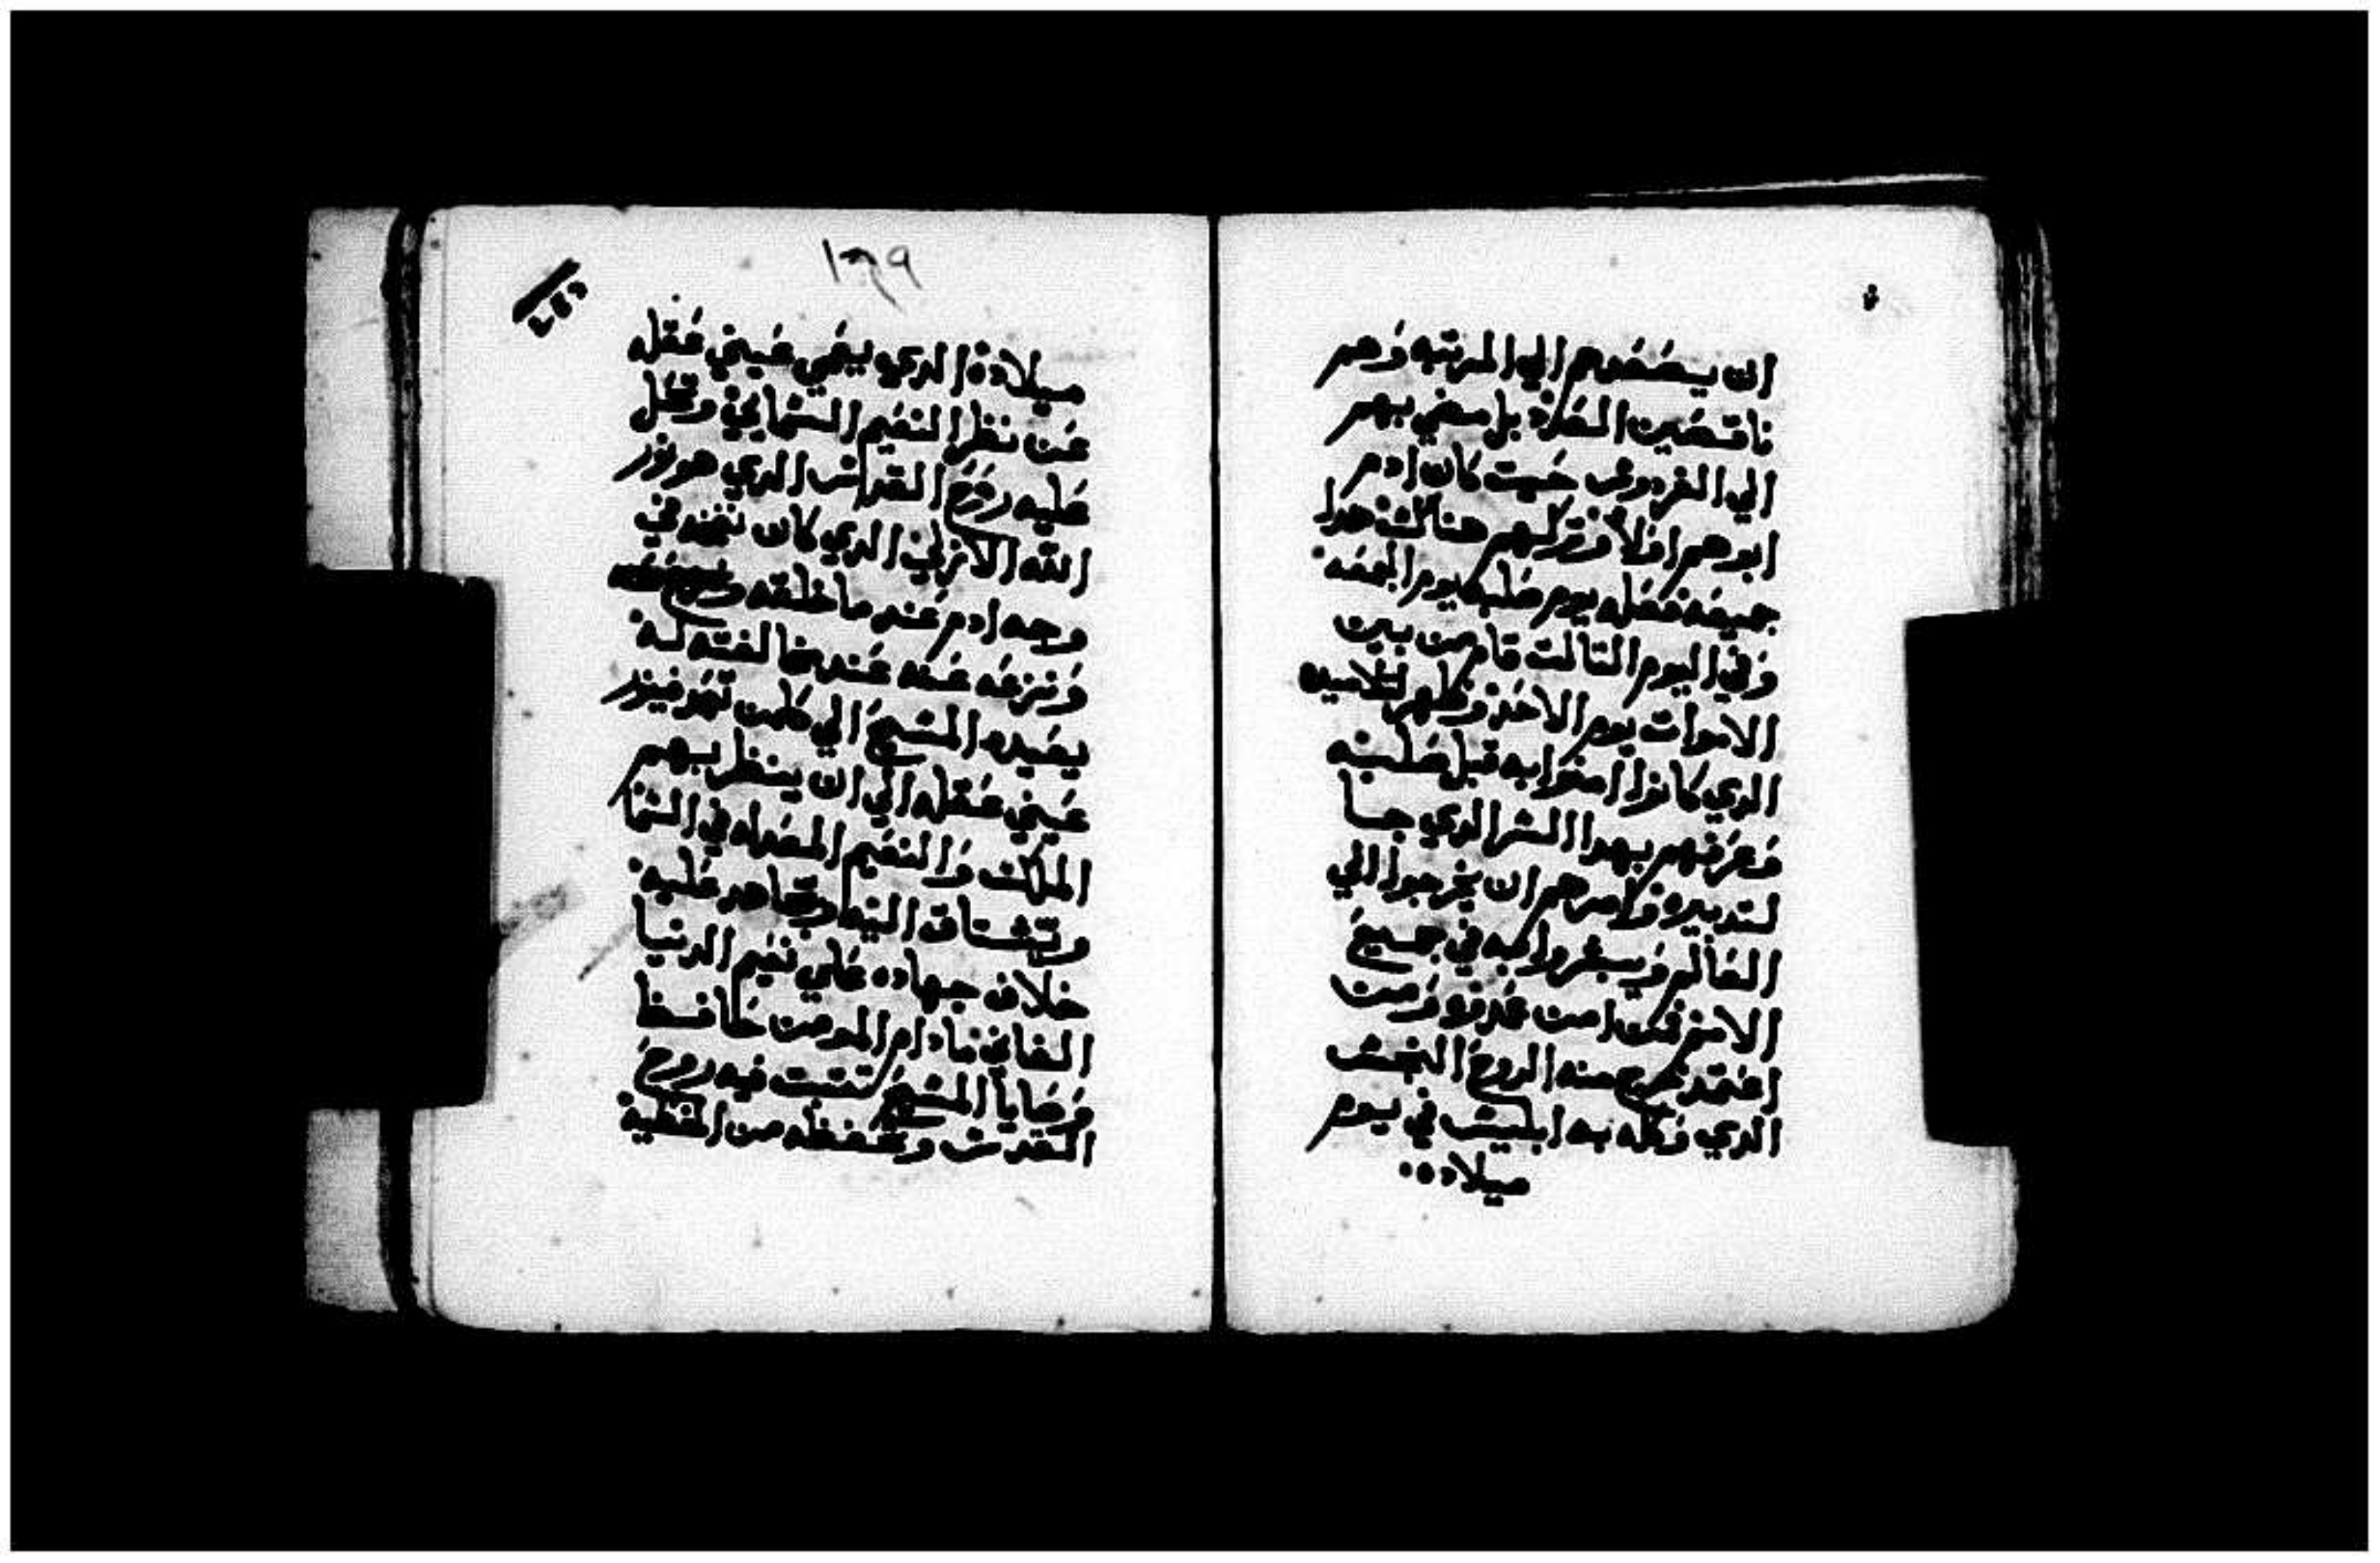 ان يصعدهم الي المرتبه وهم
ناقصين الصلاه بل مضي بهم
الي الفردوس حيت كان ادم
ابوهم اولا وتركهم هناك هدا
جميعه فعله يوم صلبه يوم الجمعه
وفي اليوم التالت قام من بين
الاموات يوم الاحد وظهر لتلاميده
الدي كانوا امنوا به قبل صلبه
وعرفهم بهدا السر الدي جا
لتدبيره وامرهم ان يخرجوا الي
العالم ويبشروا به في جميع
الامم فمن امن عرفوه ومن
اعتمد خرج منه الروح النجس
الدي وكله به ابليس في يوم
ميلاده
١٣٩
ميلاده الدي يعمي عيني عقله
عن نظر النعيم السمايي وتحل
عليه روح القدس الدي هو نور
الله الازلي الدي كان نفخه في
وجه ادم عند ما خلقه
ونزعه عنه عند مخالفته له
يعيده المسيح الي كلمن تعمد فينور
عيني عقله الي ان ينظر بهم
الملك والنعيم المعد له في السما
وتشتاق اليه ويجاهد عليه
خلاف جهاده علي نعيم الدنيا
الفاني مادام المومن حافظ
وصايا المسيح تتبت فيه روح
القدس وتحفظه من الخطيه